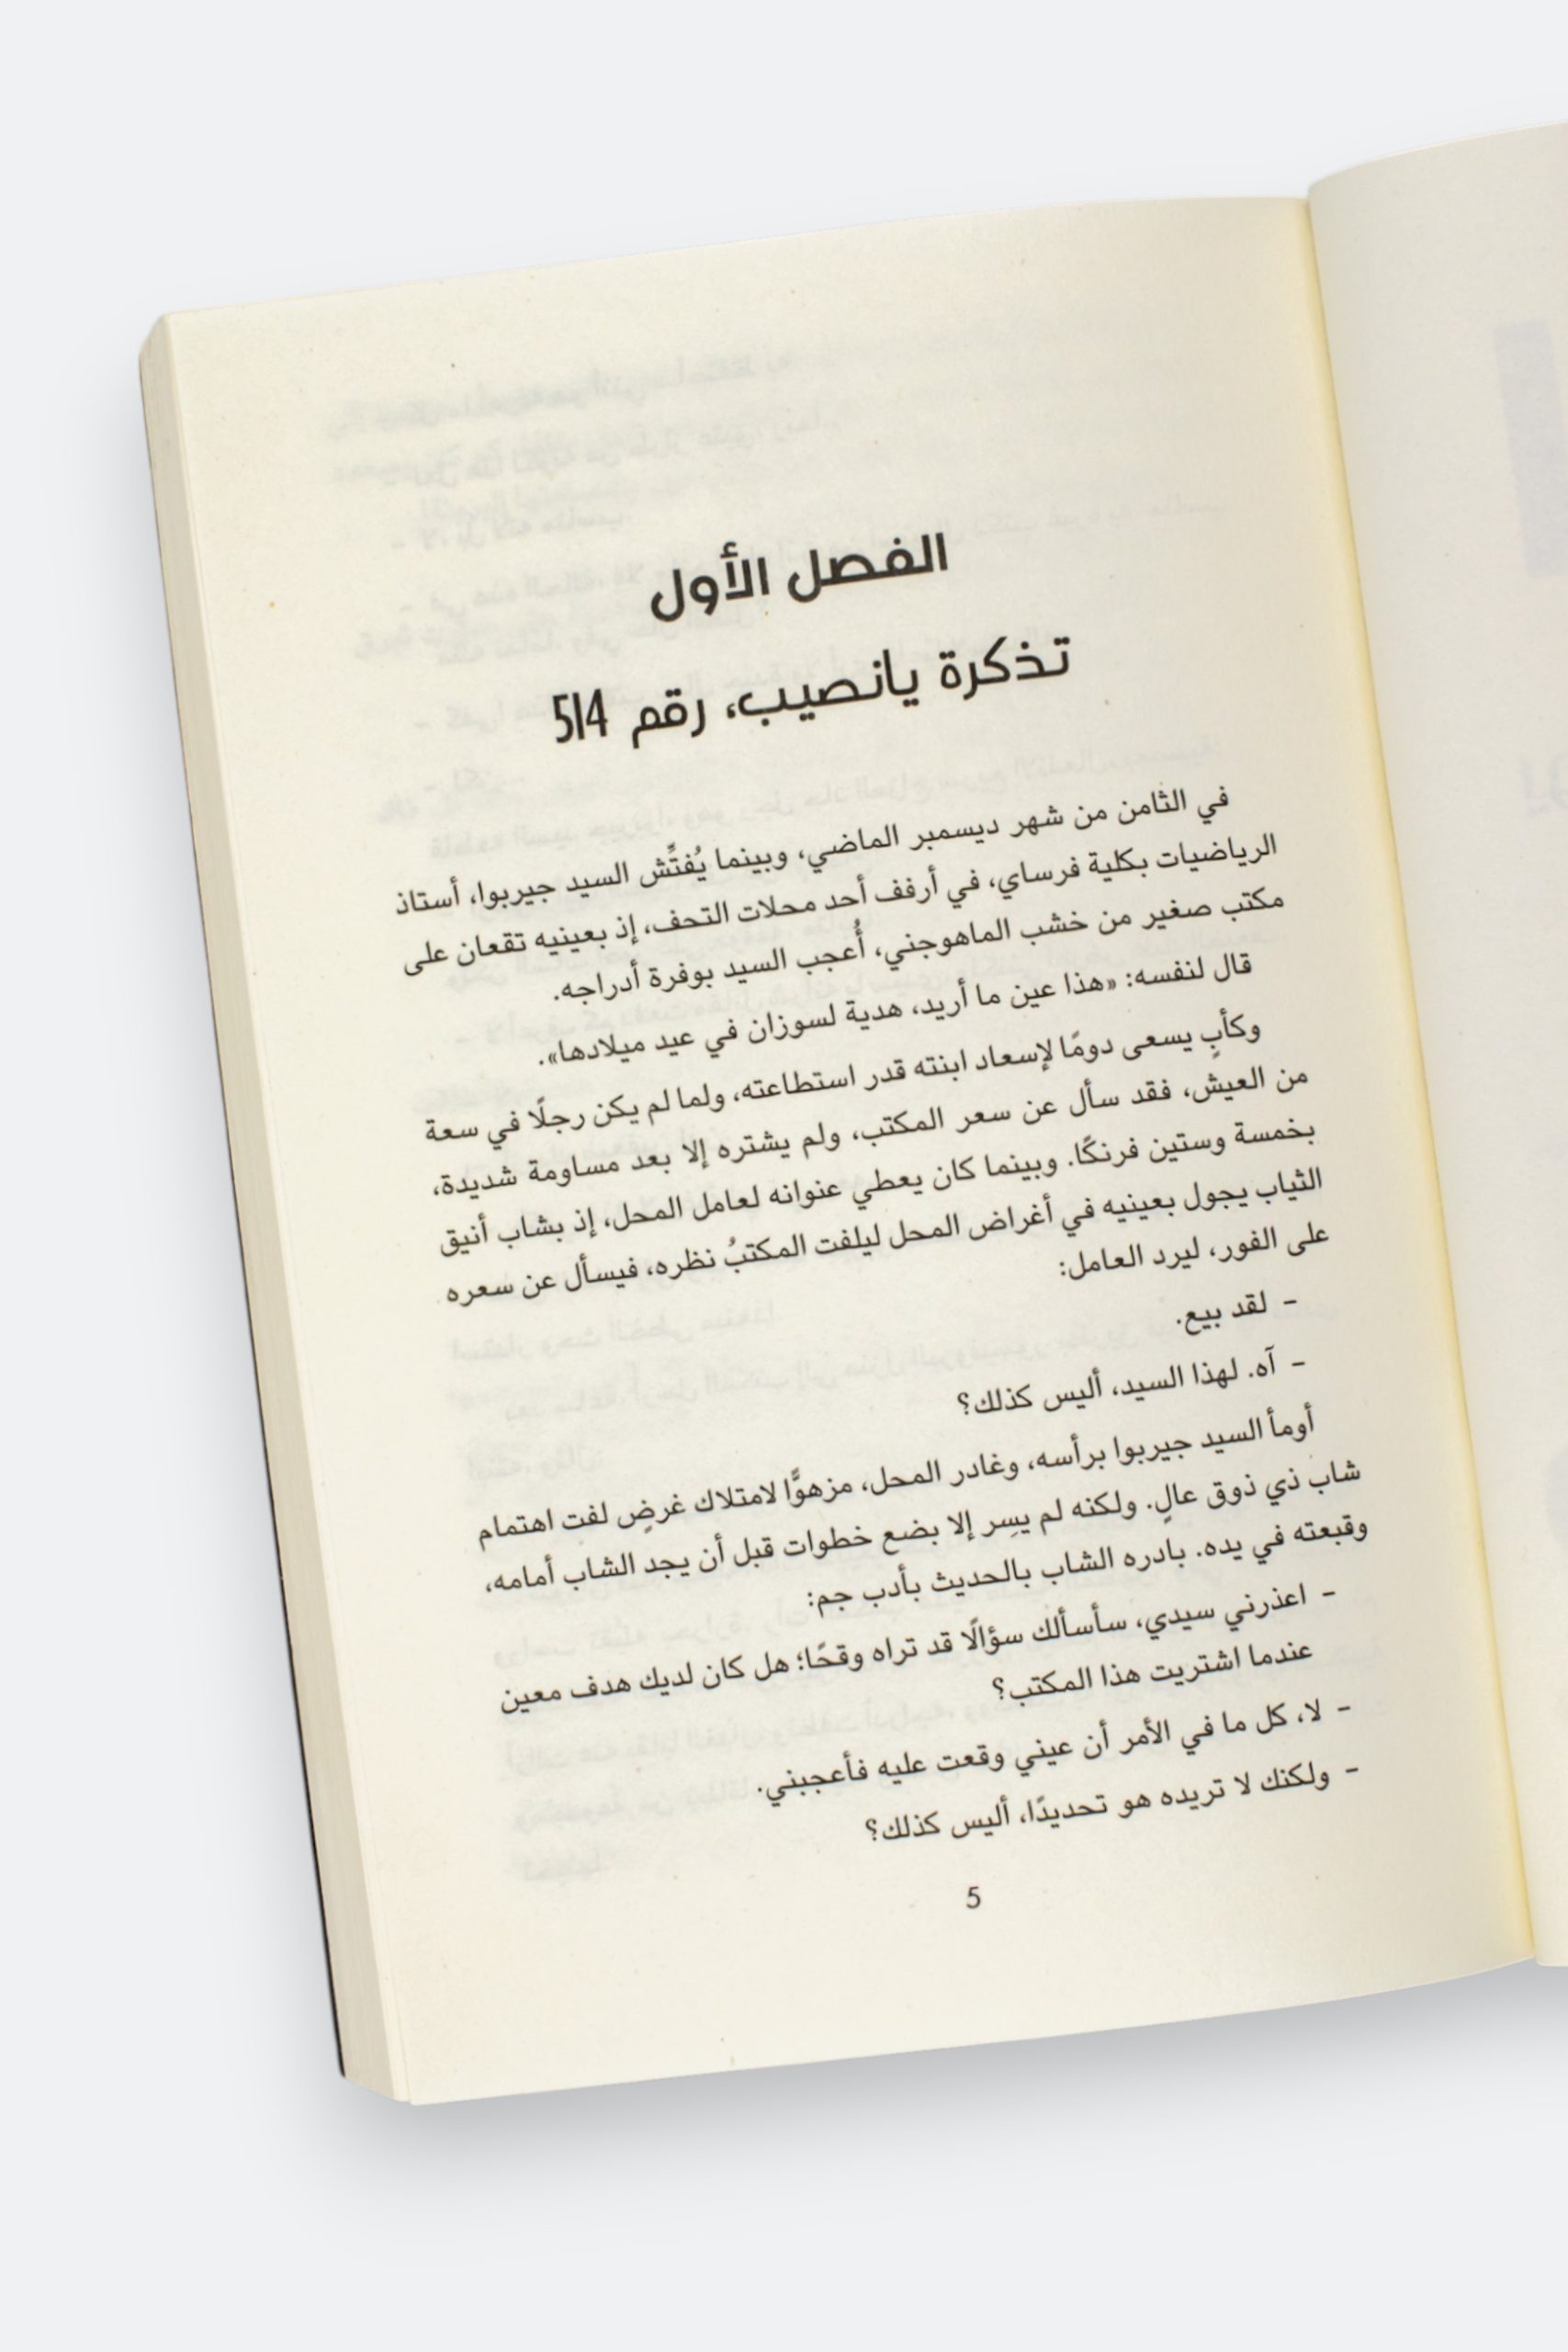 الفصل الأول
تذكرة يانصيب، رقم 514
في الثامن من شهر ديسمبر الماضي، وبينما يُفتِّش السيد جيربوا، أستاذ
الرياضيات بكلية فرساي، في أرفف أحد محلات التحف، إذ بعينيه تقعان على
مكتب صغير من خشب الماهوجني، أُعجب السيد بوفرة أدراجه.
قال لنفسه: «هذا عين ما أريد، هدية لسوزان في عيد ميلادها».
وكأبٍ يسعى دومًا لإسعاد ابنته قدر استطاعته، ولما لم يكن رجلًا في سعة
من العيش، فقد سأل عن سعر المكتب، ولم يشتره إلا بعد مساومة شديدة،
بخمسة وستين فرنكًا. وبينما كان يعطي عنوانه لعامل المحل، إذ بشاب أنيق
الثياب يجول بعينيه في أغراض المحل ليلفت المكتبُ نظره، فيسأل عن سعره
على الفور، ليرد العامل:
- لقد بيع.
- آه. لهذا السيد، أليس كذلك؟
أومأ السيد جيربوا برأسه، وغادر المحل، مزهوًّا لامتلاك غرضٍ لفت اهتمام
شاب ذي ذوق عالٍ. ولكنه لم يسِر إلا بضع خطوات قبل أن يجد الشاب أمامه،
وقبعته في يده. بادره الشاب بالحديث بأدب جم:
- اعذرني سيدي، سأسألك سؤالًا قد تراه وقحًا؛ هل كان لديك هدف معين
عندما اشتريت هذا المكتب؟
- لا، كل ما في الأمر أن عيني وقعت عليه فأعجبني.
- ولكنك لا تريده هو تحديدًا، أليس كذلك؟
5